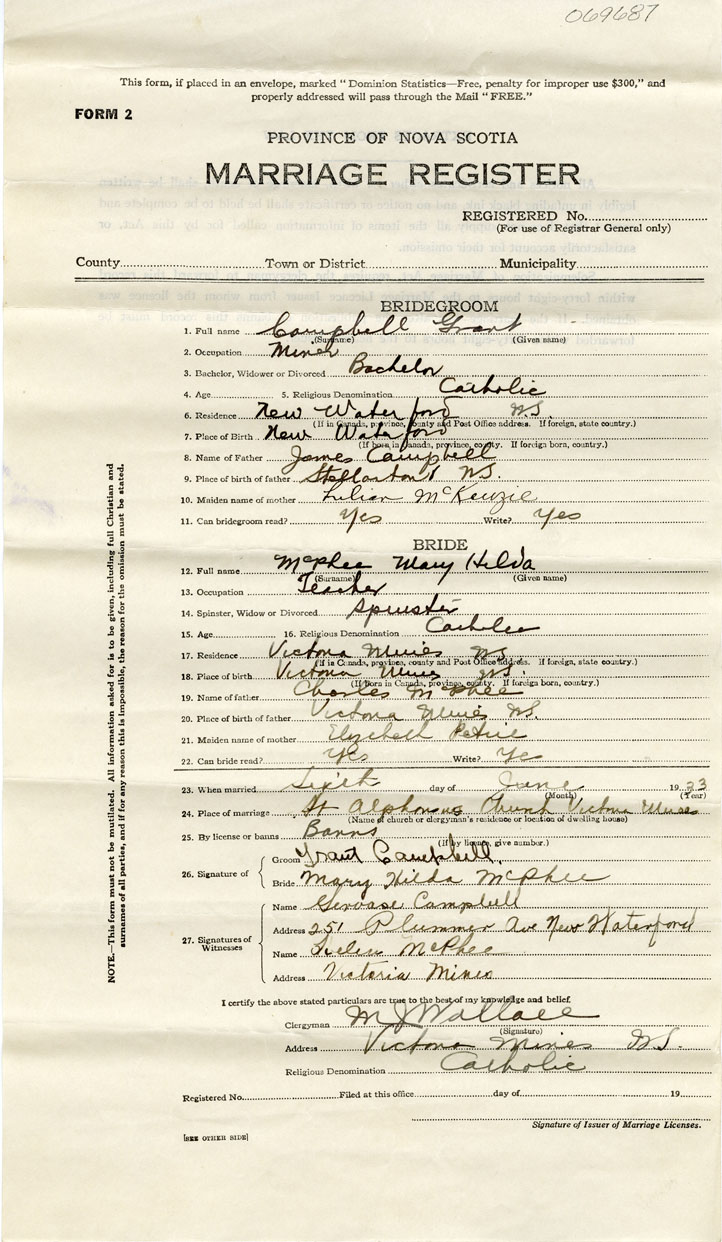 069687
This form, if placed in an envelope, marked "Dominion Statistics—Free, penalty for improper use $300," and
properly addressed will pass through the Mail "FREE."
FORM 2
PROVINCE OF NOVA SCOTIA
MARRIAGE REGISTER
REGISTERED No.
(For use of Registrar General only)
County Town or District Municipality
BRIDEGROOM
1. Full name Campbell Grant
(Surname) (Given name)
2. Occupation Miner
3. Bachelor, Widower or Divorced Bachelor
4. Age 5. Religious Denomination Catholic
6. Residence New Waterford N.S.
(If in Canada, province, county and Post Office address. If foreign, state country.)
7. Place of Birth New Waterford
(If born in Canada, province, county. If foreign born, country.)
8. Name of Father James Campbell
9. Place of birth of father Stellarton N.S.
10. Maiden name of mother Lilian McKenzie
11. Can bridegroom read? Yes Write? Yes
BRIDE
12. Full name McPhee Mary Hilda
(Surname) (Given name)
13. Occupation Teacher
14. Spinster, Widow or Divorced Spinster
15. Age 16. Religious Denomination Catholic
17. Residence Victoria Mines N.S.
(If in Canada, province, county and Post Office address. If foreign, state country.)
18. Place of birth Victoria Mines N.S.
(If born in Canada, province, county. If foreign born, country.)
19. Name of father Charles McPhee
20. Place of birth of father Victoria Mines N.S.
21. Maiden name of mother Elizabeth Petrie
22. Can bride read? Yes Write? Yes
23. When married Sixth day of June 1923
(Month) (Year)
24. Place of marriage St Alphonsus Church Victoria Mines
(Name of church or clergyman's residence or location of dwelling house)
25. By license or banns Banns
(If by licence, give number.)
26. Signature of Groom Grant Campbell
Bride Mary Hilda McPhee
27. Signatures of Witnesses
Name Gervase Campbell
Address 251 Plummer Ave New Waterford
Name McPhee
Address Victoria Mines
I certify the above stated particulars are true to the best of my knowledge and belief.
Clergyman M J Wallace
(Signature)
Address Victoria Mines N.S.
Religious Denomination Catholic
Registered No. Filed at this office day of 19
Signature of Issuer of Marriage Licenses.
[SEE OTHER SIDE]
NOTE.—This form must not be mutilated. All information asked for is to be given, including full Christian and
surnames of all parties, and if for any reason this is impossible, the reason for the omission must be stated.